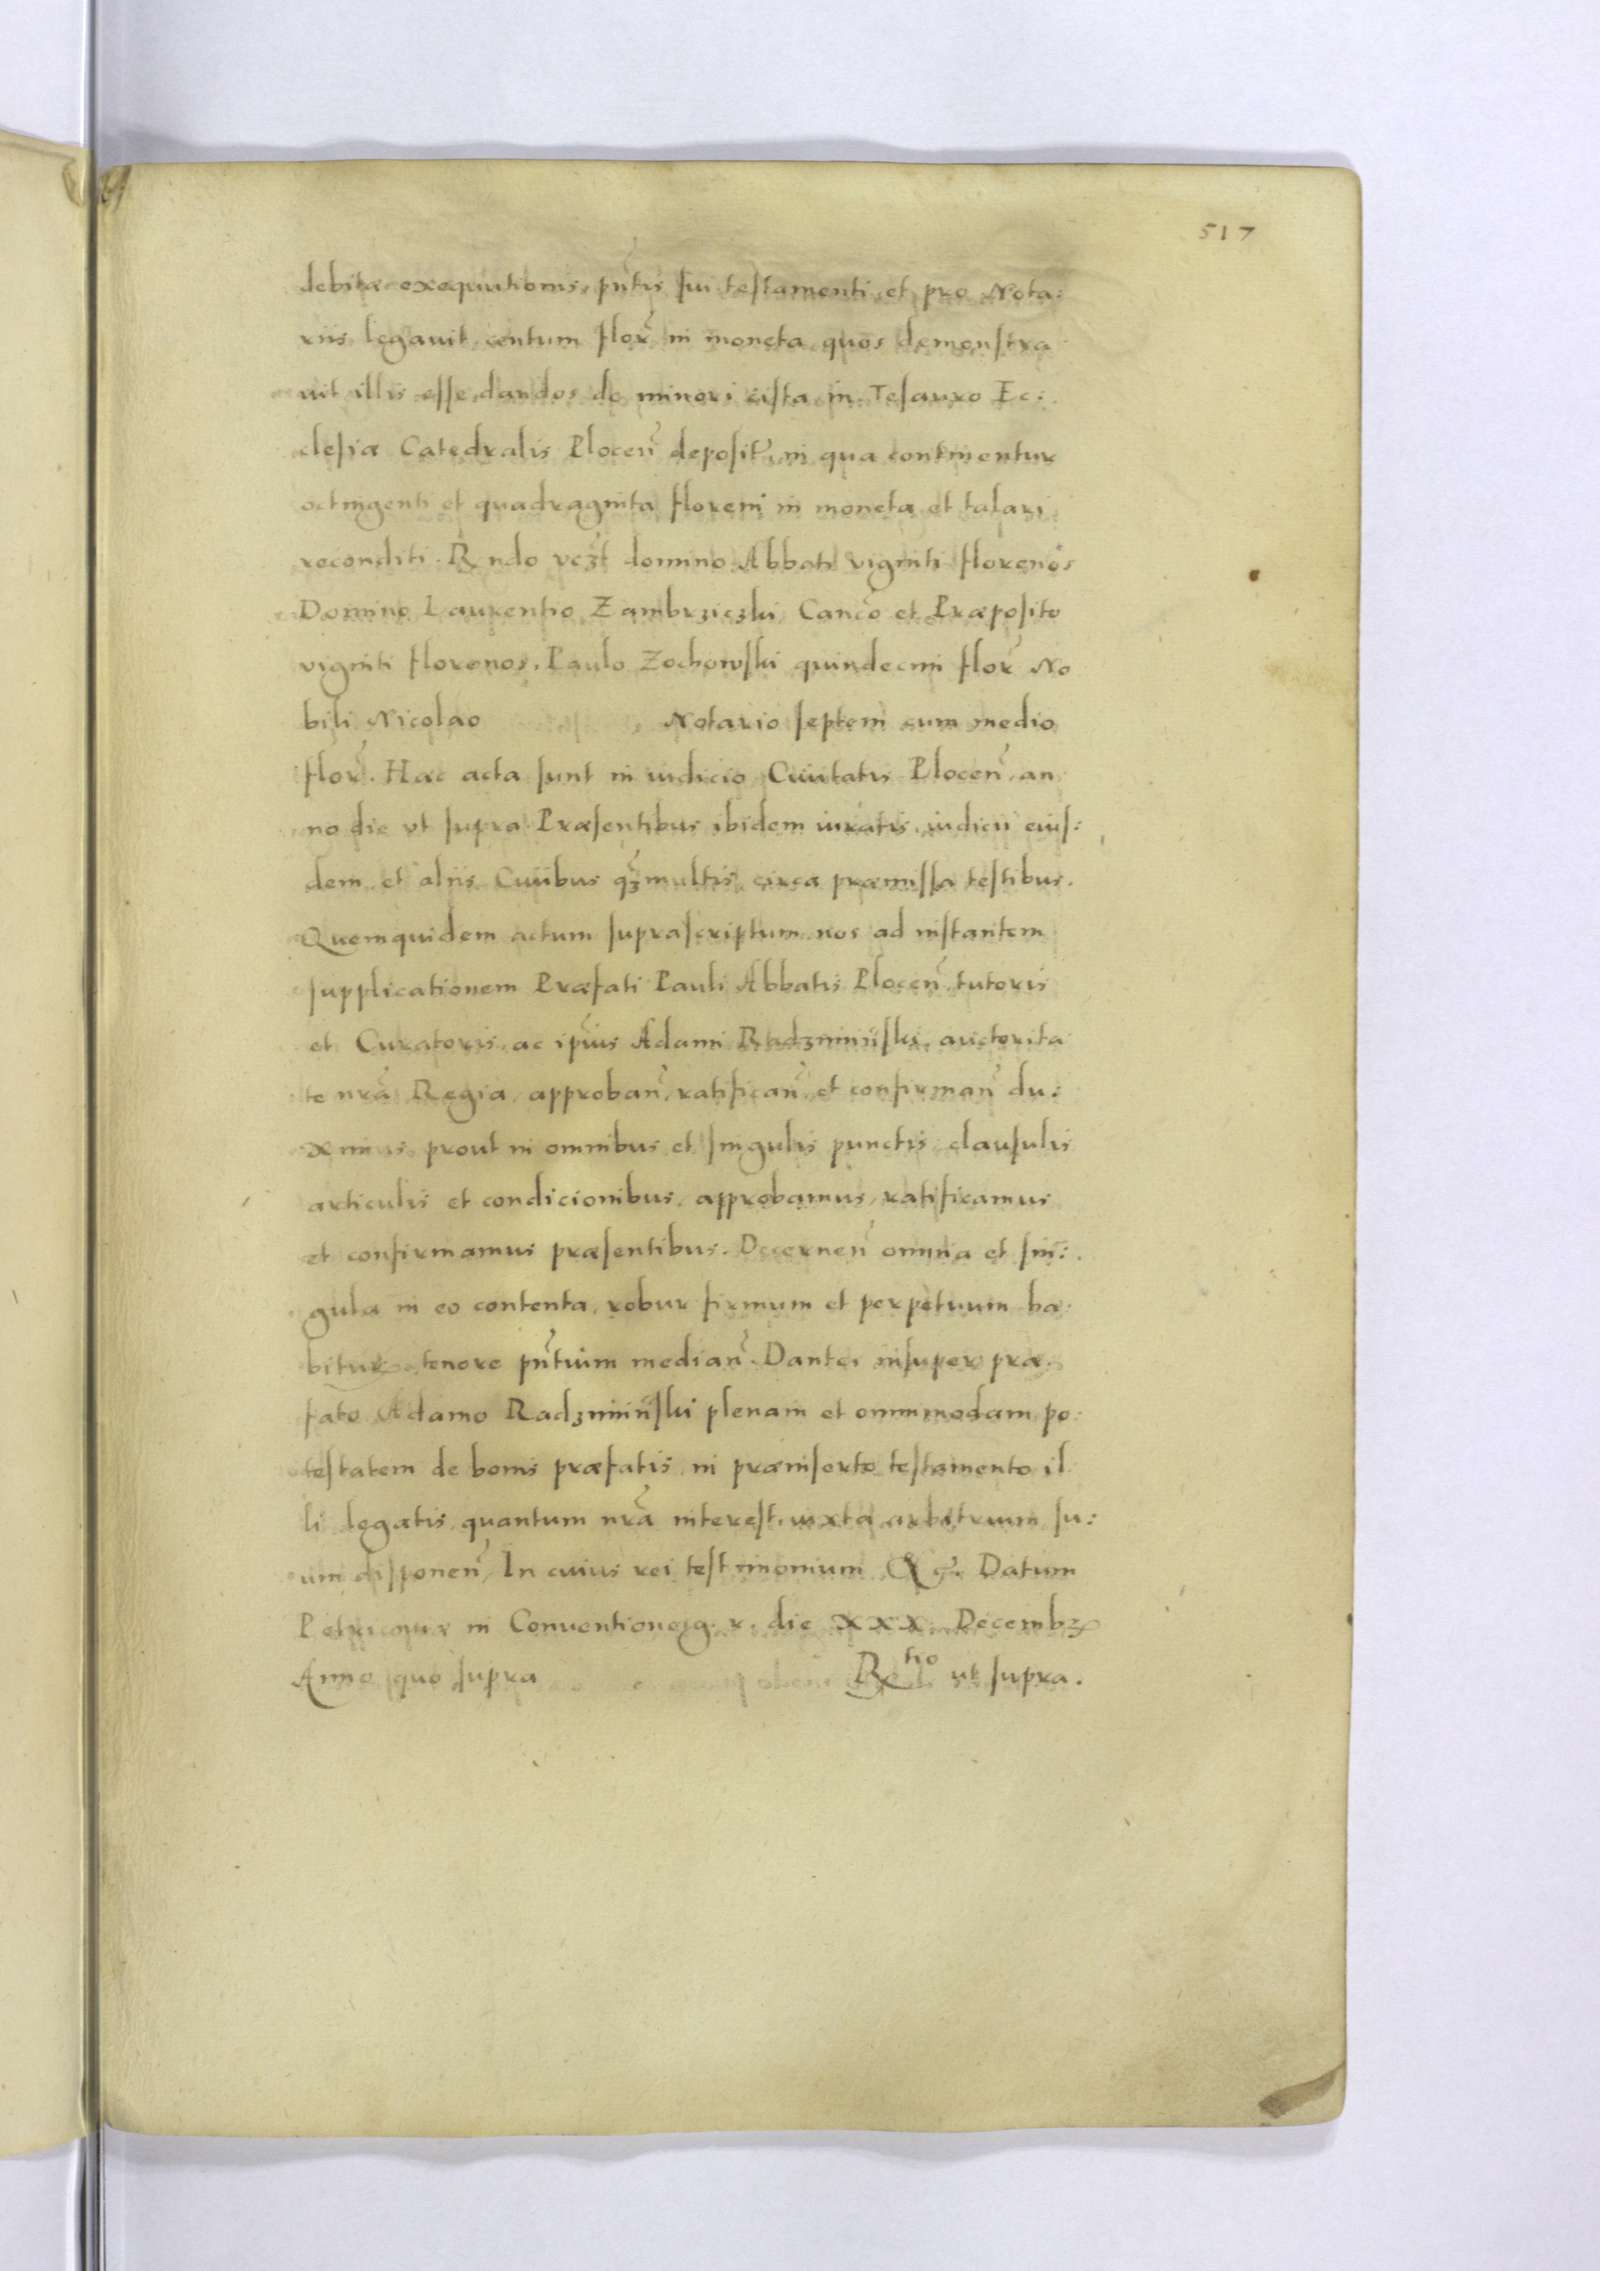 517
debitæ exequutionis, pntis sui testamenti, et pro Nota:
riis legavit centum flor in moneta quos demonstra
vit illis esse dandos de minori cista in Tesauro Ec:
clesiæ Catedralis Plocen deposit, in qua continentur
octingenti et quadraginta floreni in moneta et talari
reconditi. Rndo vczt domino Abbati viginti florenos
Domino Laurentio Zambrziczki Canco et Præposito
viginti florenos, Paulo Zochowski quindecim flor No
bili Nicolao Notario septem cum medio
flor. Hæc acta sunt in iudicio Civitatis Plocen, an
no die vt supra. Præsentibus ibidem iuratis, iudicii eius:
dem et aliis Civibus qzmultis, circa præmissa testibus.
Quemquidem actum suprascriptum nos ad instantem
supplicationem Præfati Pauli Abbatis Plocen tutoris
et Curatoris, ac ipius Adami Radzminiski, auctorita
te nra Regia, approban, ratifican, et confirman du:
ximus, prout in omnibus et singulis punctis clausulis
articulis et condicionibus, approbamus, ratificamus
et confirmamus præsentibus. Decernen omnia et sin:
gula in eo contenta, robur firmum et perpetuum ha:
bitur tenore pntium median. Dantes insuper præ
fato Adamo Radzminiski plenam et omnimodam po:
testatem de bonis præfatis, in præinserto testamento il
li legatis, quantum nra interest, iuxta arbitrium su:
um disponen, In cuius rei testimonium &c. Datum
Petricoviæ in Conventione g. r. die XXX Decembz
Anno quo supra R tio ut supra.